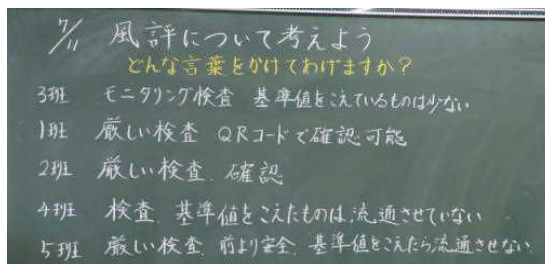 7/11 風評について考えよう
どんな言葉をかけてあげますか?
3班 モニタリング検査 基準値をこえているものは少ない
1班 厳しい検査 QRコードで確認可能
2班 厳しい検査、確認
4班 検査、基準値をこえたものは、流通させていない
5班 厳しい検査、前より安全、基準値をこえたら流通させない